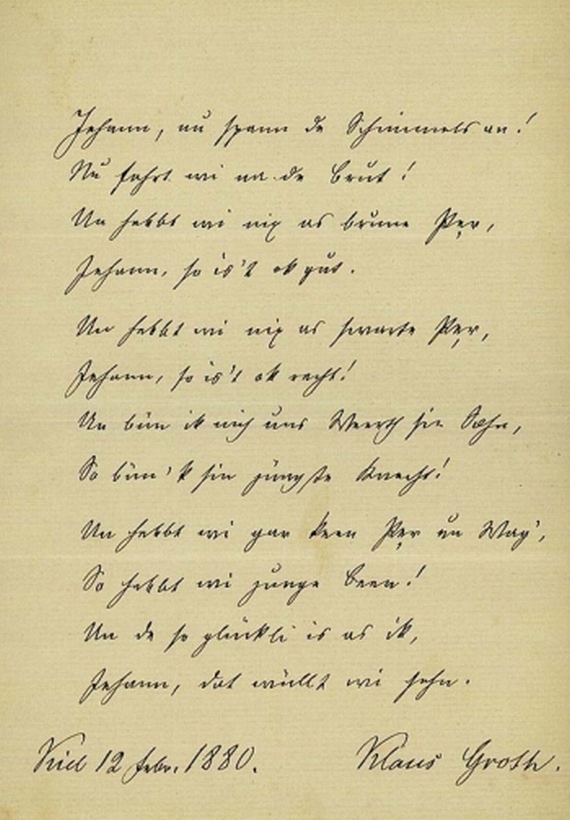 Jehann, nu spann de Schimmels an!
Nu fahrt wi na de Brut!
Un hebbt wi nix as brune Per,
Jehann, so is't ok gut.
Un hebbt wi nix as swarte Per,
Jehann, so is't ok recht!
Un bün ik nich uns Weerth sin Sœhn,
So bün'k sin jüngste Knecht!
Un hebbt wi gar keen Per un Wag',
So hebbt wi junge Been!
Un de so glückli is as ik,
Jehann, dat wüllt wi sehn.
Kiel 12 Febr. 1880. Klaus Groth.